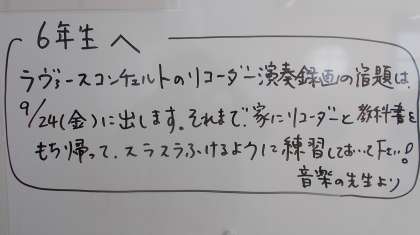 6年生へ
ラヴァースコンチェルトのリコーダー演奏録画の宿題は、
9/24(金)に出します。それまで、家にリコーダーと教科書を
もち帰って、スラスラふけるように練習しておいて下さい。
音楽の先生より